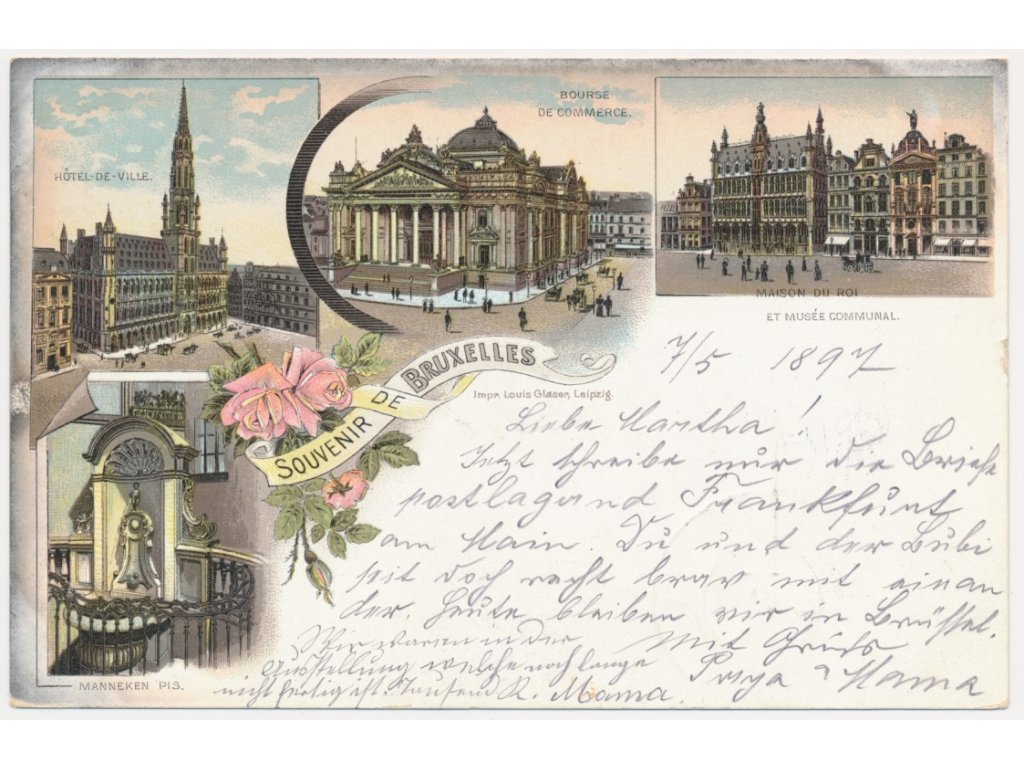 HÔTEL-DE-VILLE.
BOURSE
DE COMMERCE.
MAISON DU ROI
ET MUSÉE COMMUNAL.
SOUVENIR DE BRUXELLES
Impr. Louis Glaser, Leipzig.
MANNEKEN PIS.
7/5 1897
Liebe Martha!
Jetzt schreibe nur die Briefe
postlagernd Frankfurt
am Main. Du und der Bubi
seit doch recht brav mit einan
der. Heute bleiben wir in Brüssel.
Mit Gruß
Mama
Wir waren in der
Ausstellung welche noch lange
nicht fertig ist. Tausend K. Mama.